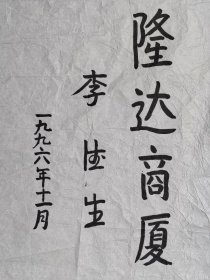 隆达商厦
李德生
一九九六年十一月